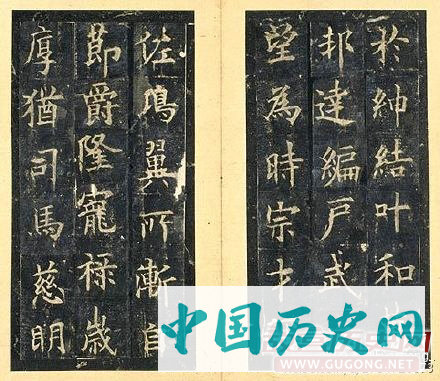 於紳結叶和
邦達編戶武
望為時宗才
佐鴻翼所漸
節爵隆寵祿歲
厚猶司馬慈明
中国历史网
WWW.GUGONG.NET